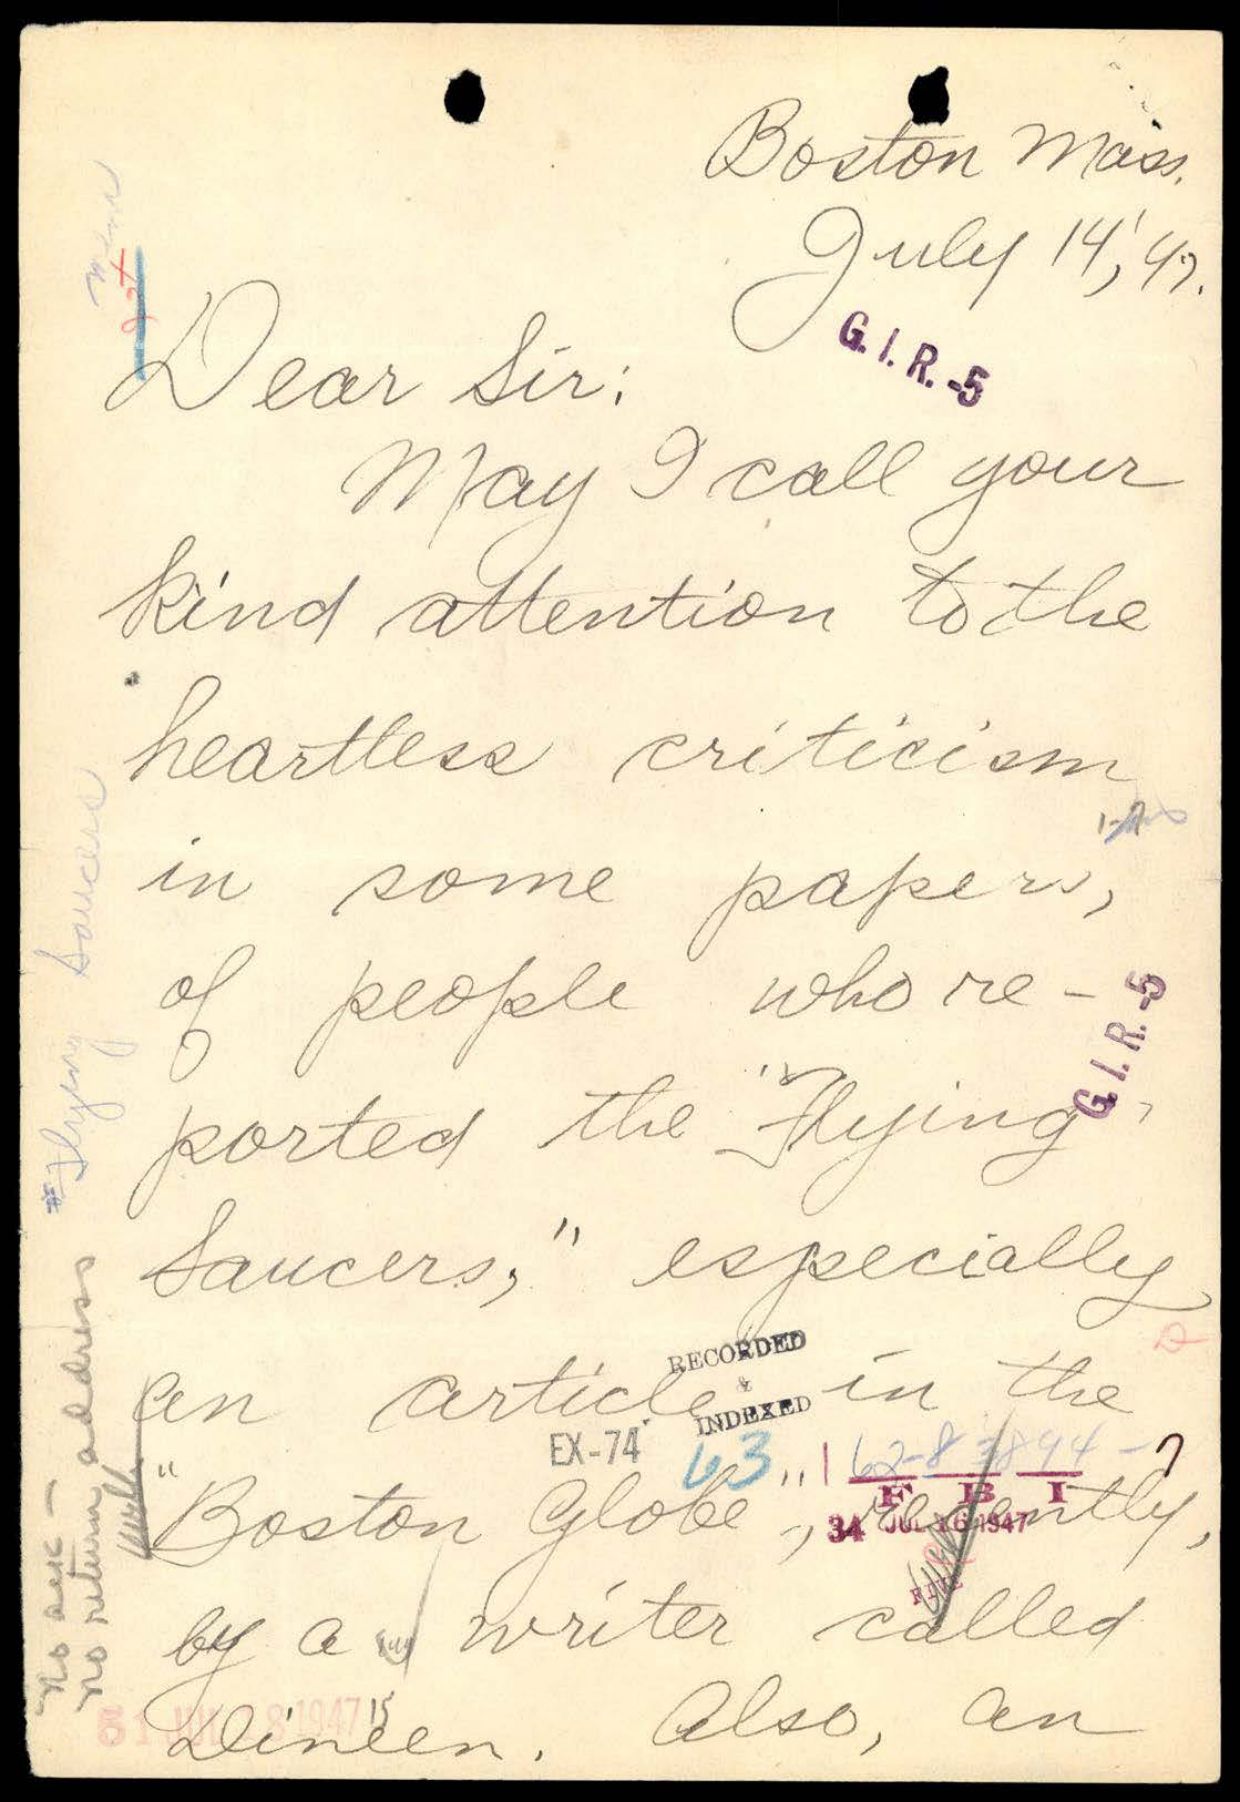 Boston Mass.
July 14, '47.
G. I. R. -5
Dear Sir:
May I call your
kind attention to the
heartless criticism
in some papers,
of people who re-
ported the "Flying
G. I. R. -5
Saucers," especially
RECORDED
&
INDEXED
an article in the
EX-74
63
62-83894-
F B I
34 JUL 16 1947
"Boston Globe", recently,
by a writer called
Dineen. Also, an
51 JUL 28 1947
Flying Saucers
No ack —
No return address